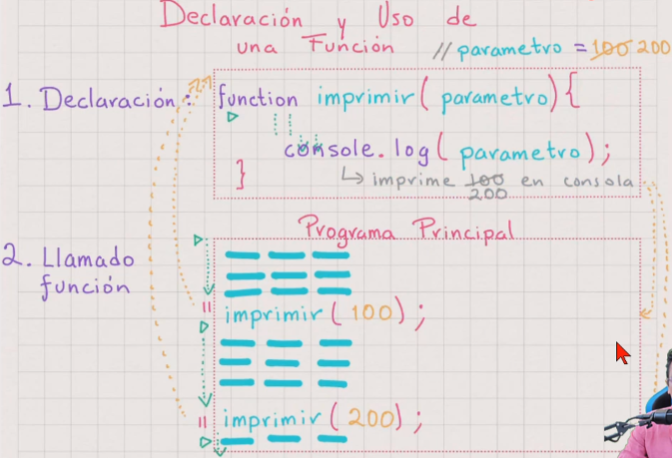 Declaración y Uso de
una Función // parametro = 100 200
1. Declaración: function imprimir( parametro) {
console.log( parametro);
} ↳ imprime 100 en consola
200
Programa Principal
2. Llamado
función
imprimir( 100) ;
imprimir( 200) ;